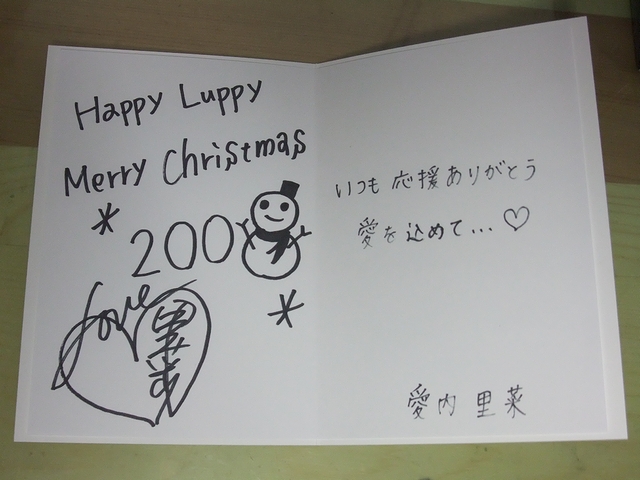 Happy Luppy
Merry Christmas
2008
love
里菜
いつも 応援ありがとう
愛を込めて...♡
愛内 里菜